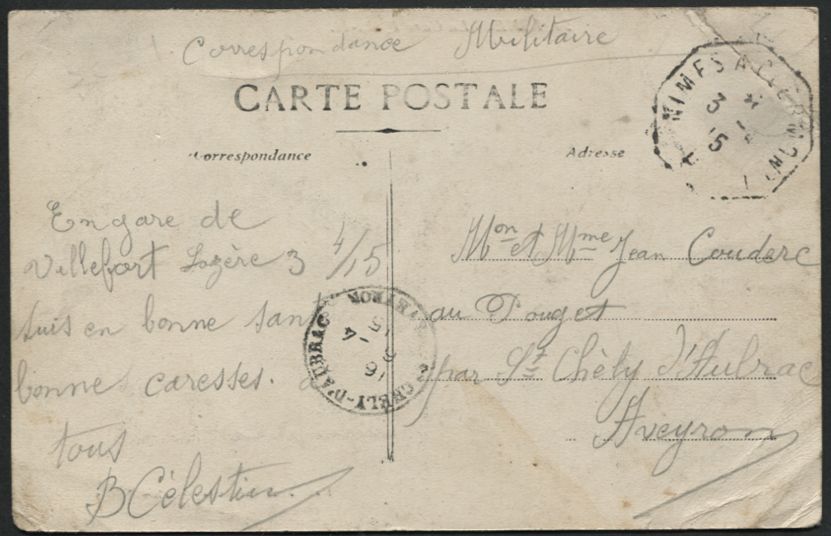 Correspondance Militaire
CARTE POSTALE
Correspondance
Adresse
NIMES A CLER
3 4
15
En gare de
Villefort Lozère 3 4/15
suis en bonne sant
bonnes caresses. à
tous
B Célestin
Mon et Mme Jean Couderc
au Pouget
par St Chély d'Aubrac
Aveyron
CHELY-D'AUBRAC
16
5 - 4
15